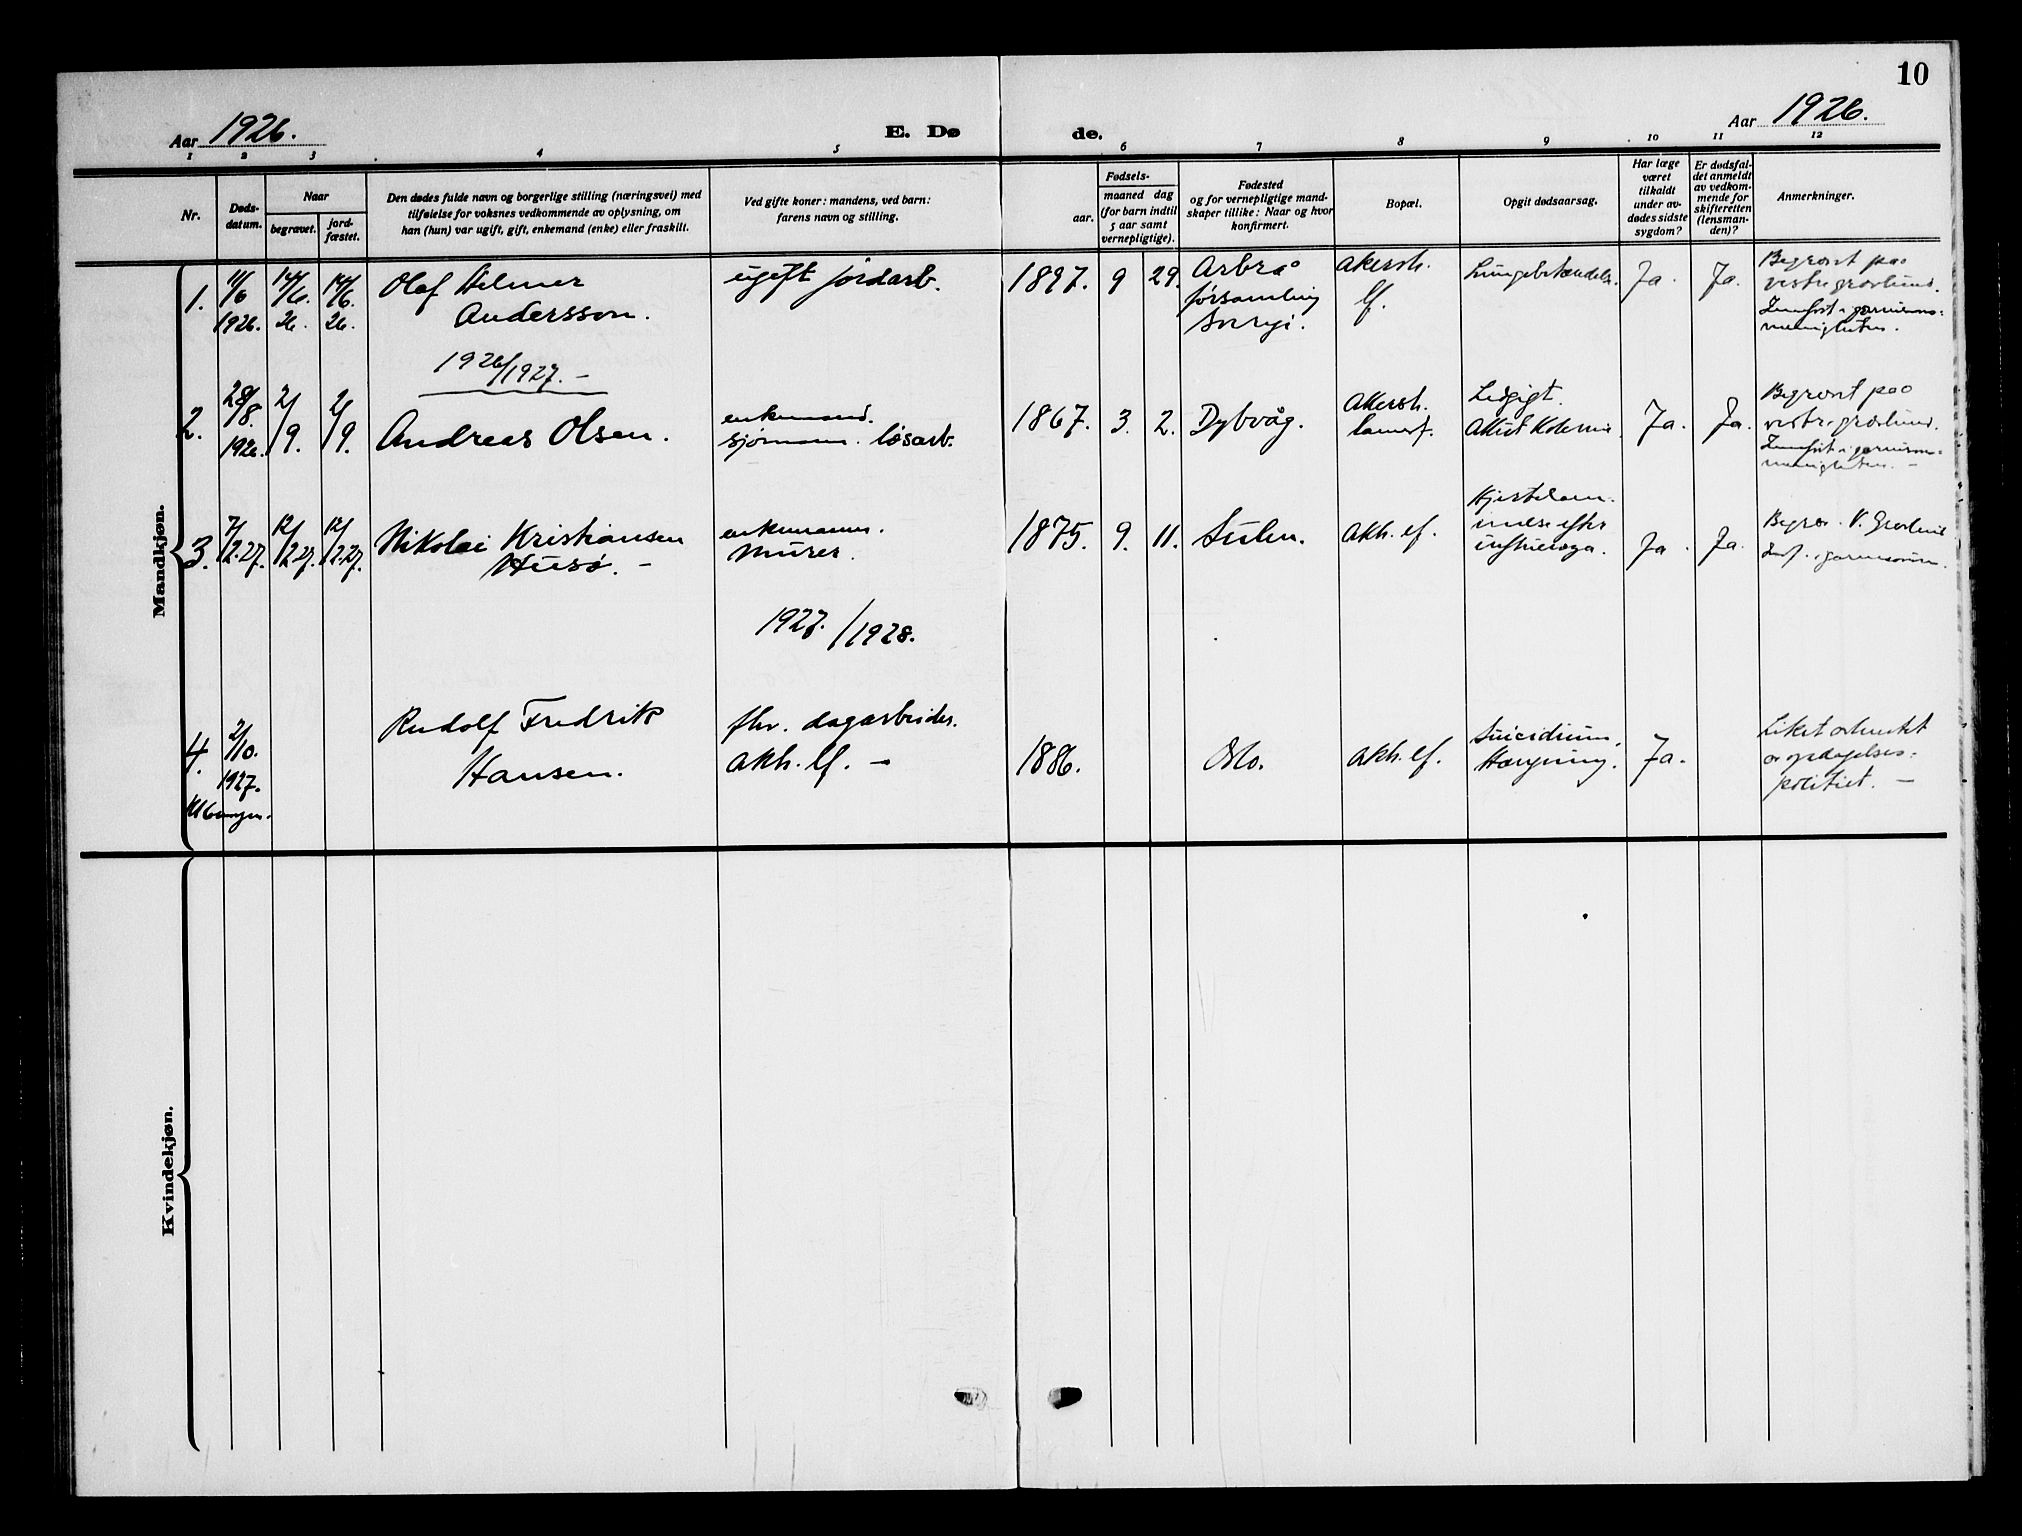 10
Aar 1926.
E. Døde.
Aar 1926.
1 2 3 4 5 6 7 8 9 10 11 12
Nr.
Døds-
datum.
Naar
begravet.
jord-
fæstet.
Den dødes fulde navn og borgerlige stilling (næringsvei) med
tilføielse for voksnes vedkommende av oplysning, om
han (hun) var ugift, gift, enkemand (enke) eller fraskilt.
Ved gifte koner: mandens, ved barn:
farens navn og stilling.
Fødsels-
aar.
maaned dag
(for barn indtil
5 aar samt
vernepligtige).
Fødested
og for vernepligtige mand-
skaper tillike: Naar og hvor
konfirmert.
Bopæl.
Opgit dødsaarsag.
Har læge
været
tilkaldt
under av-
dødes sidste
sygdom?
Er dødsfal-
det anmeldt
av vedkom-
mende for
skifteretten
(lensman-
den)?
Anmerkninger.
Mandkjøn.
1.
11/6
1926.
14/6.
26.
14/6.
26.
Olaf Helmer
Andersson.
ugift jordarb.
1897. 9 29.
Arbrå
församling
Sverge.
Akersh.
lf.
Lungebetændelse.
Ja.
Ja.
Begravet paa
vestre gravlund.
Innført i garnisons-
menigheten.
1926/1927. –
2.
28/8.
1926.
2/9.
2/9.
Andreas Olsen.
enkemand.
sjømann. løsarb.
1867. 3. 2.
Dybvåg.
Akersh.
landsf.
Ledgigt.
Ja.
Ja.
Begravet paa
vestre gravlund.
Innført i garnisons-
menigheten. –
3.
7/12.27.
12/12.27.
12/12.27.
Nikolai Kristiansen
Husø. –
enkemann.
murer.
1875. 9. 11.
Sulen.
Akh. lf.
Hjertelam-
melse efter
influensa.
Ja.
Ja.
Begrav. V. Gravlund
Innf. i garnisonen.
1927./1928.
4.
2/10.
1927.
Rudolf Fredrik
Hansen.
fhv. dagarbeider.
Akh. lf. –
1886.
Oslo.
Akh. lf.
Suicidium,
Hængning.
Ja.
Liket avhentet
av opdagelses-
politiet. –
Kvindekjøn.